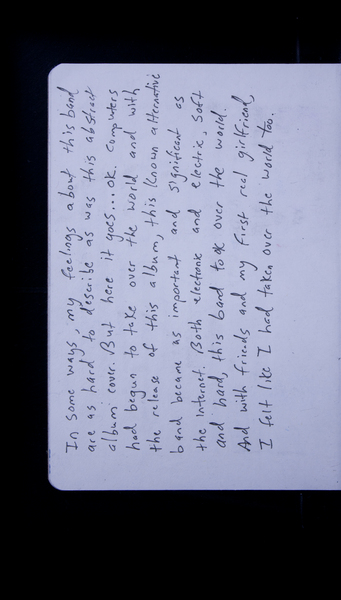 In some ways, my feelings about this band
are as hard to describe as was this abstract
album cover. But here it goes... OK. Computers
had begun to take over the world and with
the release of this album, this known alternative
band became as important and significant as
the internet. Both electronic and electric, soft
and hard, this band took over the world.
And with friends and my first real girlfriend,
I felt like I had taken over the world too.